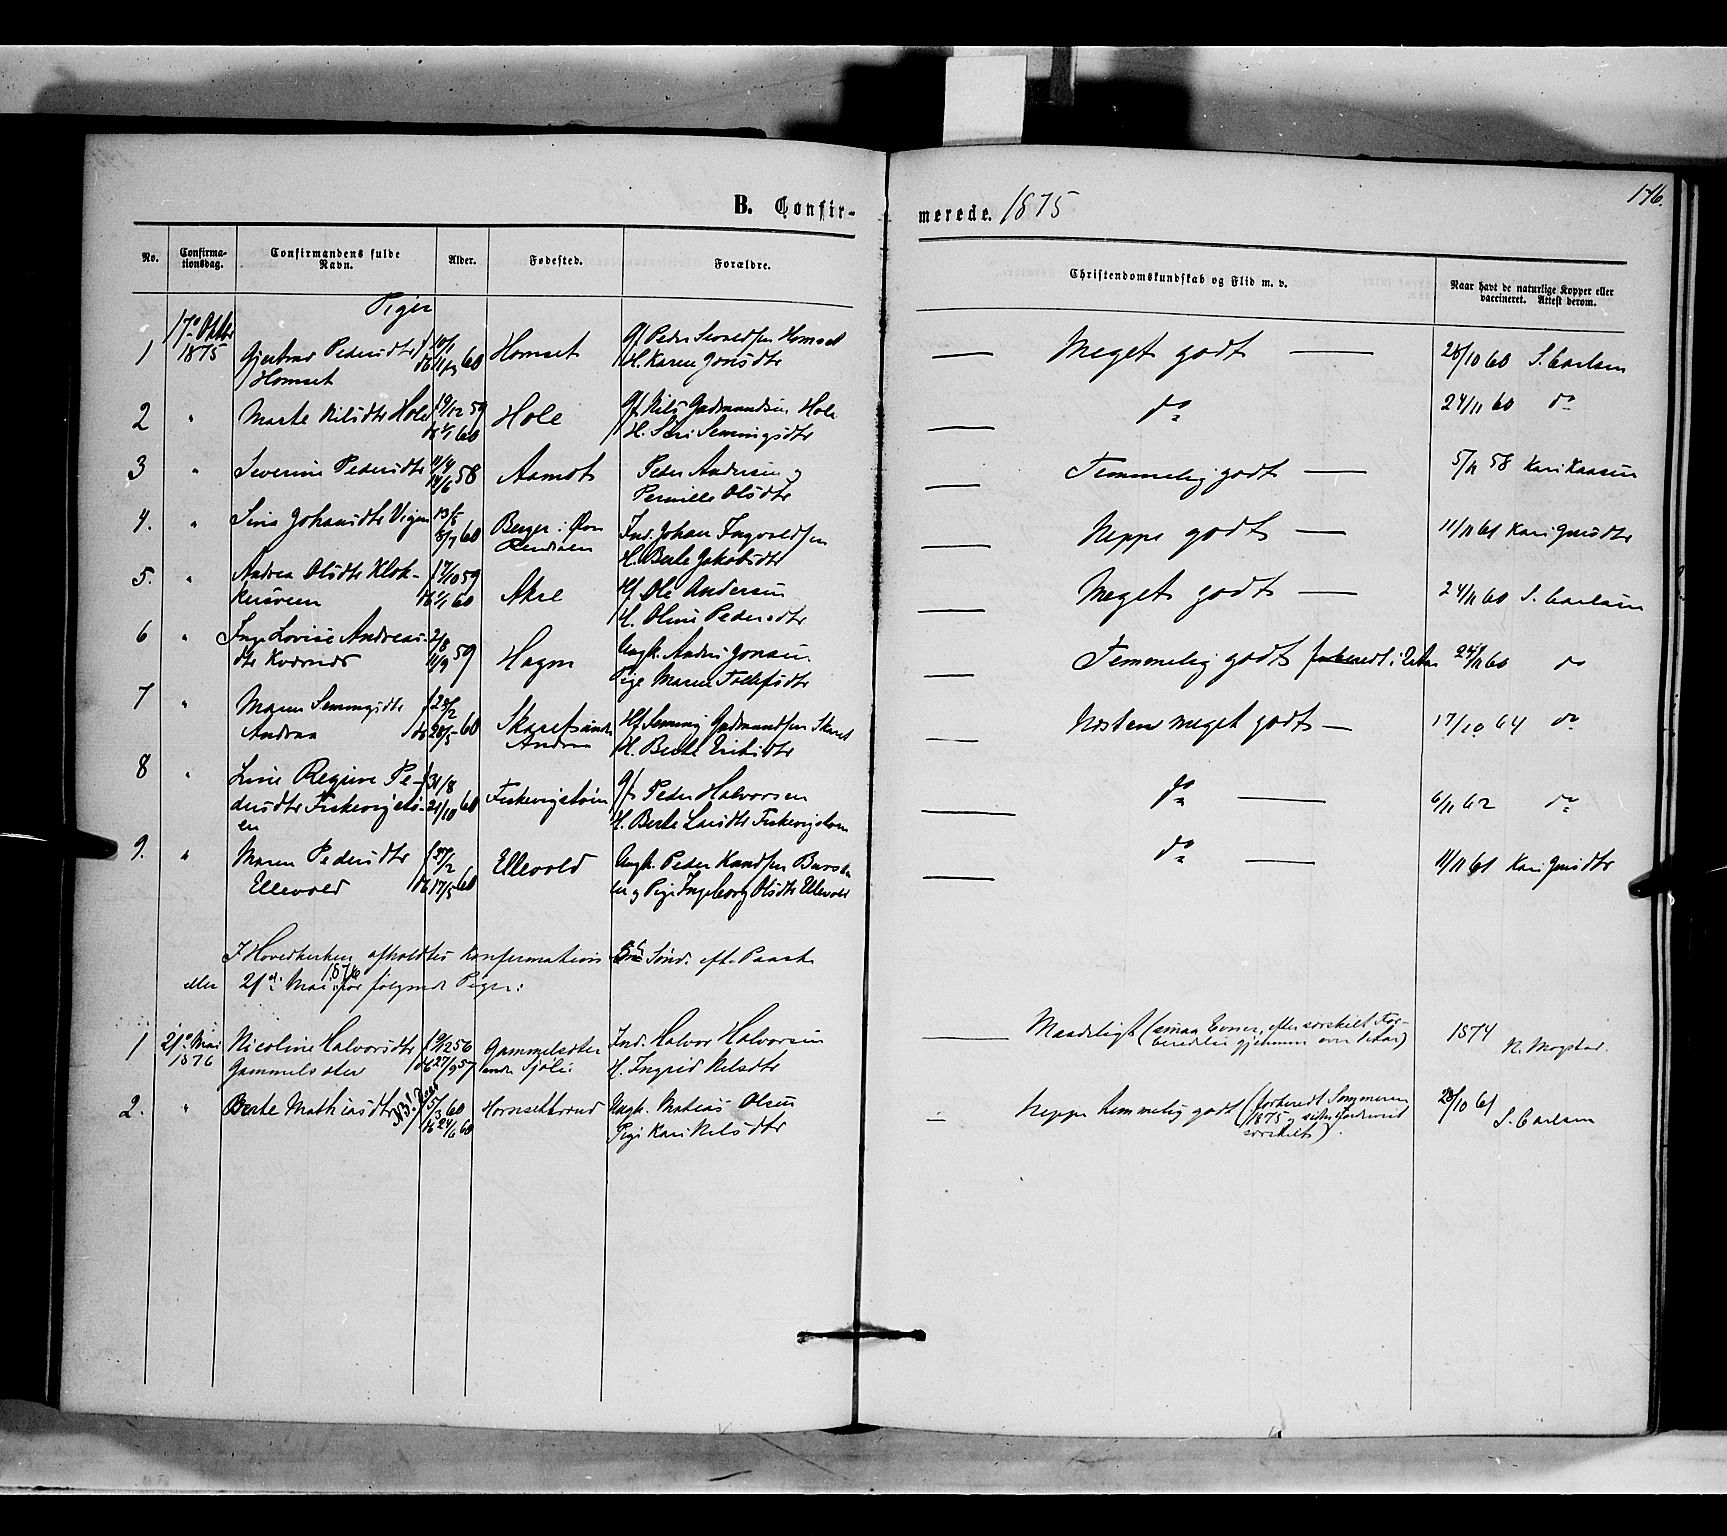 176.
B. Confirmerede. 1875
No. Confirmationsdag. Confirmandens fulde Navn. Alder. Fødested. Forældre. Christendomskundskab og Flid m. v. Naar havt de naturlige Kopper eller vaccineret. Attest derom.
Piger
1 17de Oktbr 1875 Pedersdtr Homset 60 Homset Gf. Peder Homset H. Karen Jonsdtr — Meget godt — 28/10 60 S. Carlsen
2 " Marte Nilsdtr Hole 19/12 59 60 Hole Gf. Nils Gudmundsen Hole H. Siri Semmingsdtr — do 24/11 60 do
3 " Severine Pedersdtr 58 Aamot Peder Andersen og Pernille Olsdtr — Temmelig godt — 58 Kari
4. " Johansdtr 60 Berger i Rendalen Ind. Johan Ingvoldsen H. Berte Jakobsdtr — Neppe godt — 11/11 61 Kari Jensdtr
5. " Andrea Olsdtr Klokkersveen 17/10 59 60 Akre Hf. Ole Andersen H. Oline Pedersdtr — Meget godt — 24/11 60 S. Carlsen
6 " Inge Lovise Andreasdtr 2/8 11/9 59 Hagen Ungk. Andreas Jonsen Pige Maren — Temmelig godt 24/11 60 do
7 " Maren Semmingsdtr Andraa 28/2 28/5 60 Andraa Hf. Semming Gudmundsen H. Berte Eriksdtr — Næsten meget godt — 17/10 64 do
8 " Line Regine Pedersdtr Fiskevigstøen 31/8 21/10 60 Fiskevigstøen Gf. Peder Halvorsen H. Berte Larsdtr Fiskevigstøen — do — 6/11 62 do
9. " Maren Pedersdtr Ellevold 27/2 17/5 60 Ellevold Ungk. Peder Knudsen og Pige Ingeborg Olsdtr Ellevold — do — 11/11 61 Kari Jensdtr
I Hovedkirken afholdtes Konfirmation 5te Sønd. eft. Paaske
eller 21de Mai 1876 for følgende Piger:
1 21de Mai 1876 Nicoline Halvorsdtr Gammelsæter 19/12 56 27/9 57 Gammelsæter Sjøli Ind. Halvor Halvorsen H. Ingrid Nilsdtr — Maadeligt (smaa Evner, efter særskilt Forberedelse gjennem over 1874 N. Mogstad.
2. " Berte Mathiasdtr 5/3 60 24/6 60 Ungk. Matias Olsen Pige Kari Nilsdtr — Neppe temmelig godt (forberedt Sommeren 1875 særskilt). 28/10 61 S. Carlsen